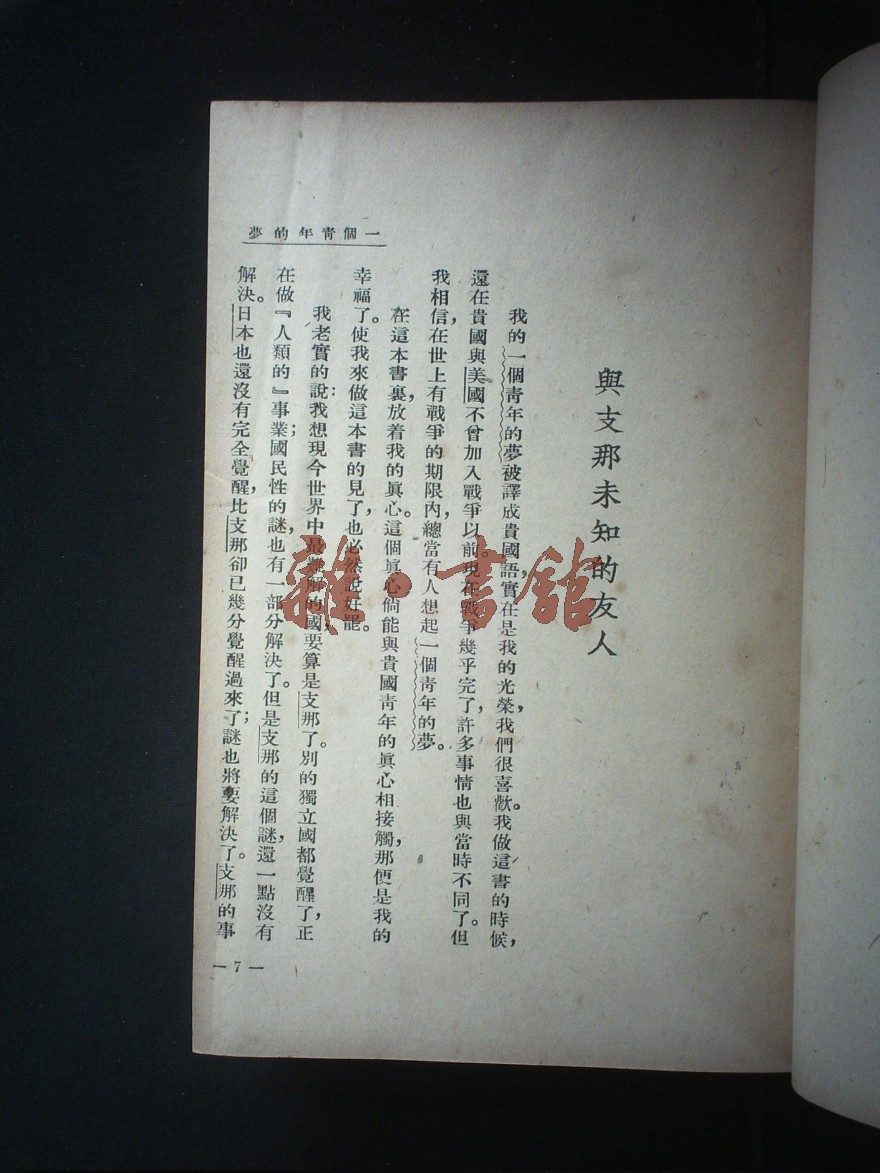 一個靑年的夢
與支那未知的友人
我的一個靑年的夢被譯成貴國語，實在是我的光榮，我們很喜歡。我做這書的時候，
還在貴國與美國不曾加入戰爭以前。現在戰爭幾乎完了，許多事情也與當時不同了。但
我相信，在世上有戰爭的期限內，總當有人想起一個靑年的夢。
在這本書裏，放着我的眞心。這個眞心倘能與貴國靑年的眞心相接觸，那便是我的
幸福了。使我來做這本書的見了，也必然說好罷。
我老實的說：我想現今世界中最難解的國，要算是支那了。別的獨立國都覺醒了，正
在做『人類的』事業；國民性的謎，也有一部分解決了。但是支那的這個謎，還一點沒有
解決。日本也還沒有完全覺醒，比支那卻已幾分覺醒過來了；謎也將要解決了。支那的事
—7—
雜·書館